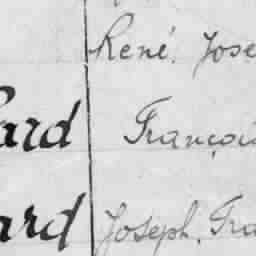 René. Jose
ard François
ard Joseph. Fra